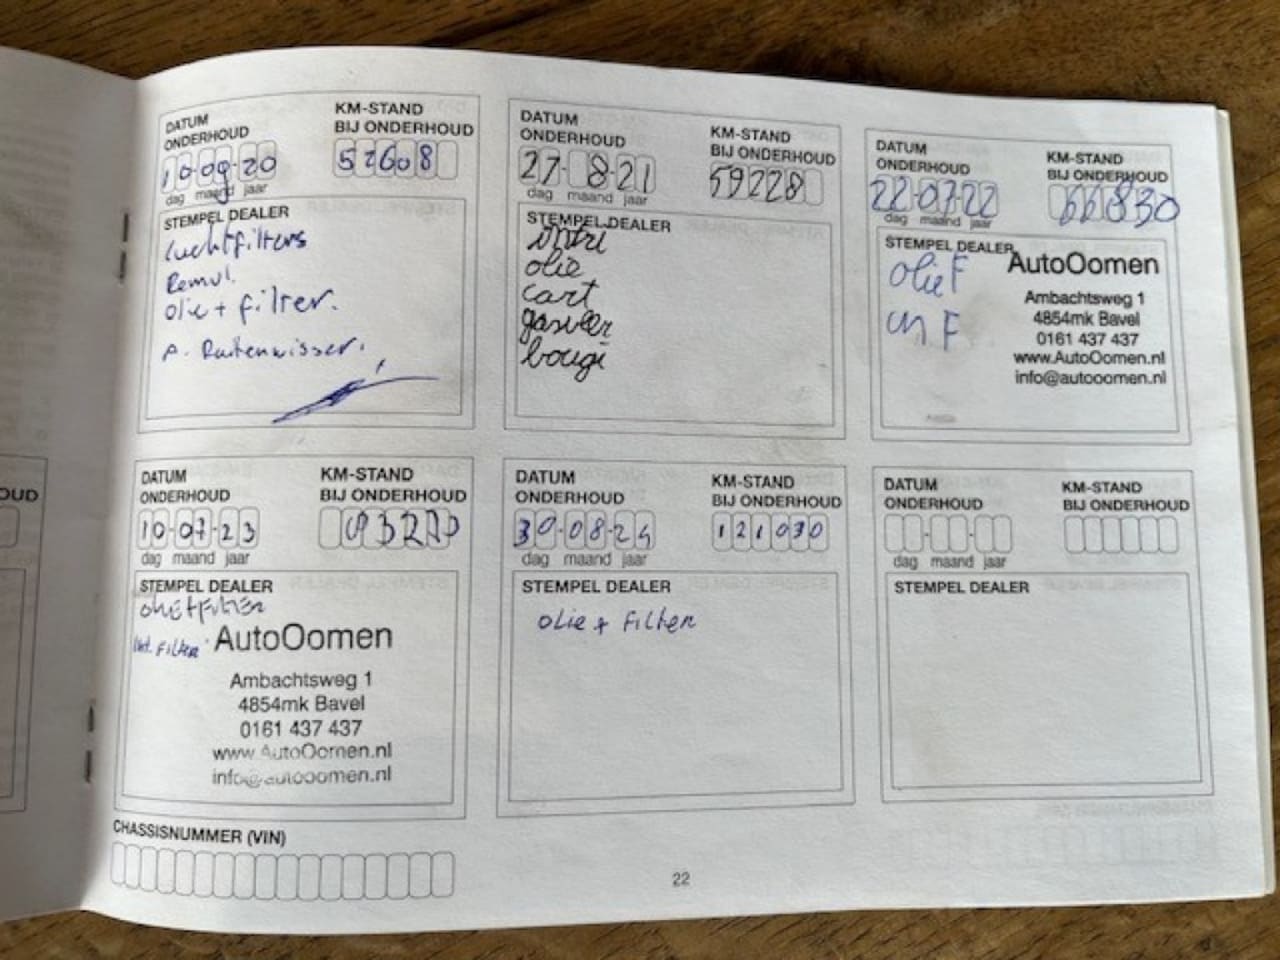 DATUM
ONDERHOUD
10-09-20
dag maand jaar
KM-STAND
BIJ ONDERHOUD
52608
STEMPEL DEALER
Luchtfilters
Remvl.
olie + filter.
A. Ruitenwisser.
DATUM
ONDERHOUD
27-8-21
dag maand jaar
KM-STAND
BIJ ONDERHOUD
59228
STEMPEL DEALER
olie
cart
bougi
DATUM
ONDERHOUD
22-07-22
dag maand jaar
KM-STAND
BIJ ONDERHOUD
66830
STEMPEL DEALER
olie F
F
AutoOomen
Ambachtsweg 1
4854mk Bavel
0161 437 437
www.AutoOomen.nl
info@autooomen.nl
DATUM
ONDERHOUD
10-07-23
dag maand jaar
KM-STAND
BIJ ONDERHOUD
STEMPEL DEALER
olie+filter
Int. Filter
AutoOomen
Ambachtsweg 1
4854mk Bavel
0161 437 437
www.AutoOomen.nl
info@autooomen.nl
DATUM
ONDERHOUD
30-08-24
dag maand jaar
KM-STAND
BIJ ONDERHOUD
121030
STEMPEL DEALER
olie + filter
DATUM
ONDERHOUD
dag maand jaar
KM-STAND
BIJ ONDERHOUD
STEMPEL DEALER
CHASSISNUMMER (VIN)
22
OUD